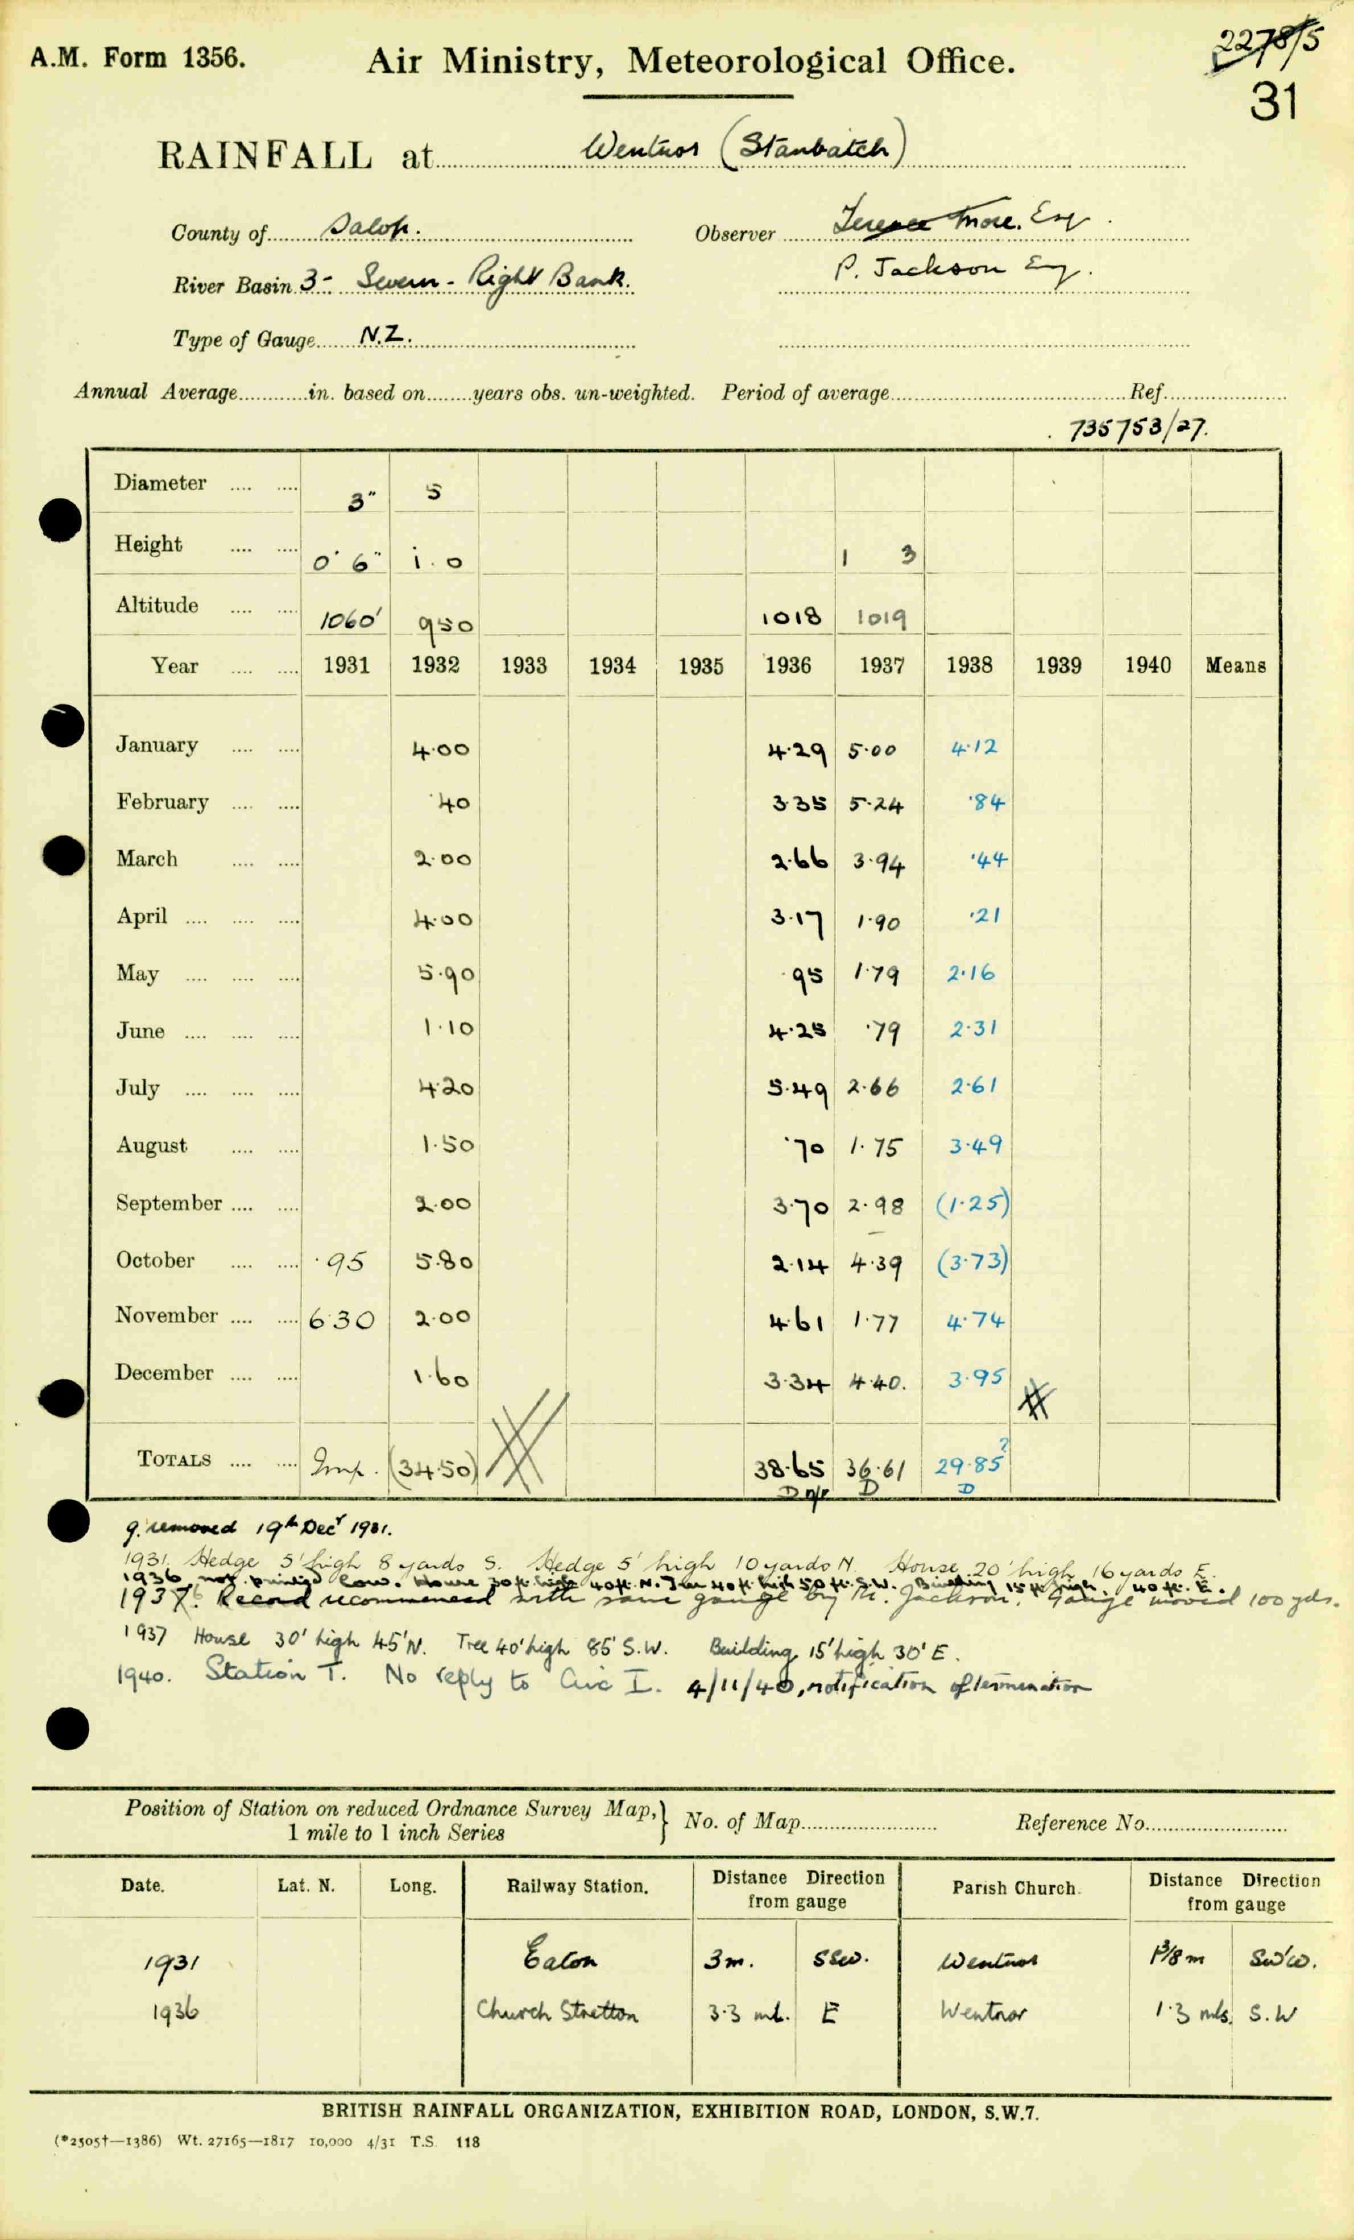 2278/5
A.M. Form 1356. Air Ministry, Meteorological Office.
31
RAINFALL at Wentnor (Stanbatch)
County of Salop. Observer Terence More. Esq
River Basin 3- Severn - Right Bank. P. Jackson Esq.
Type of Gauge N.Z.
Annual Average in. based on years obs. un-weighted. Period of average Ref.
735753/27.
Diameter 3" 5
Height 0' 6" 1.0 1 3
Altitude 1060' 950 1018 1019
Year 1931 1932 1933 1934 1935 1936 1937 1938 1939 1940 Means
January 4.00 4.29 5.00 4.12
February .40 3.35 5.24 .84
March 2.00 2.66 3.94 .44
April 4.00 3.17 1.90 .21
May 5.90 .95 1.79 2.16
June 1.10 4.25 .79 2.31
July 4.20 5.49 2.66 2.61
August 1.50 .70 1.75 3.49
September 2.00 3.70 2.98 (1.25)
October .95 5.80 2.14 4.39 (3.73)
November 6.30 2.00 4.61 1.77 4.74
December 1.60 3.34 4.40. 3.95
TOTALS Imp. (34.50) 38.65 36.61 29.85?
D n/p D D
g. removed 19th Decr 1931.
1931. Hedge 5' high 8 yards S. Hedge 5' high 10 yards N. House 20' high 16 yards E.
1936 not printed low. House 30 ft. high 40 ft. N. Tree 40 ft. high 50 ft. S.W. Building 15 ft high 40 ft. E.
1937. Record recommenced with same gauge by Mr. Jackson. Gauge moved 100 yds.
1937 House 30' high 45' N. Tree 40' high 85' S.W. Building 15' high 30' E.
1940. Station T. No reply to Circ I. 4/11/40, notification of termination
Position of Station on reduced Ordnance Survey Map, 1 mile to 1 inch Series } No. of Map Reference No.
Date. Lat. N. Long. Railway Station. Distance Direction from gauge Parish Church. Distance Direction from gauge
1931 Eaton 3m. SSW. Wentnor 1 3/8 m SW'W.
1936 Church Stretton 3.3 ml. E Wentnor 1.3 mls. S.W
BRITISH RAINFALL ORGANIZATION, EXHIBITION ROAD, LONDON, S.W.7.
(*2505†—1386) Wt. 27165—1817 10,000 4/31 T.S. 118